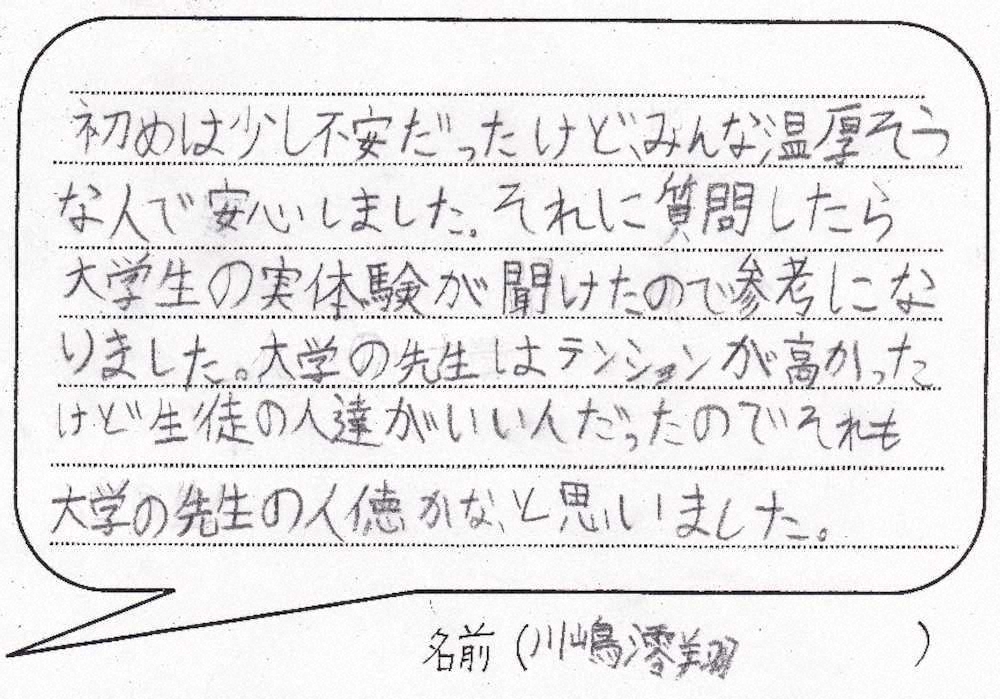 初めは少し不安だったけど、みんな温厚そう
な人で安心しました。それに質問したら
大学生の実体験が聞けたので参考にな
りました。大学の先生はテンションが高かった
けど生徒の人達がいい人だったのでそれも
大学の先生の人徳かな、と思いました。
名前(川嶋澪翔)